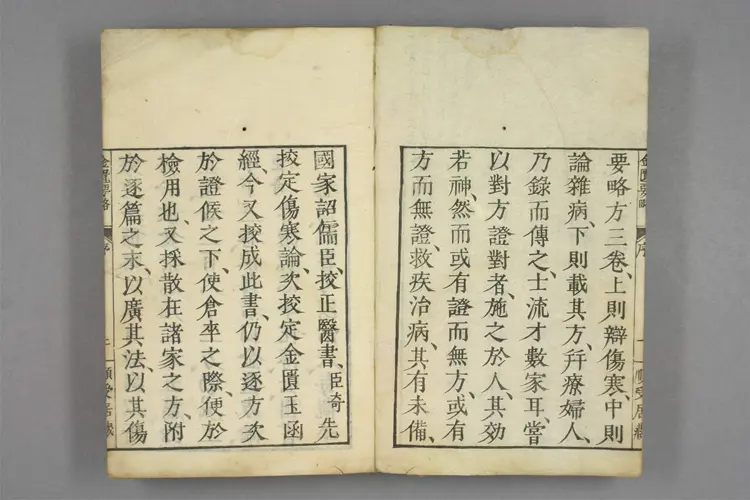 金匱要略 序
要略方三卷、上則辯傷寒、中則
論雜病、下則載其方、幷療婦人、
乃錄而傳之、士流才數家耳、嘗
以對方證對者、施之於人、其効
若神、然而或有證而無方、或有
方而無證、救疾治病、其有未備、
國家詔儒臣、挍正醫書、臣奇先
挍定傷寒論、次挍定金匱玉函
經、今又挍成此書、仍以逐方次
於證候之下、使倉卒之際、便於
檢用也、又採散在諸家之方、附
於逐篇之末、以廣其法、以其傷
金匱要略 序